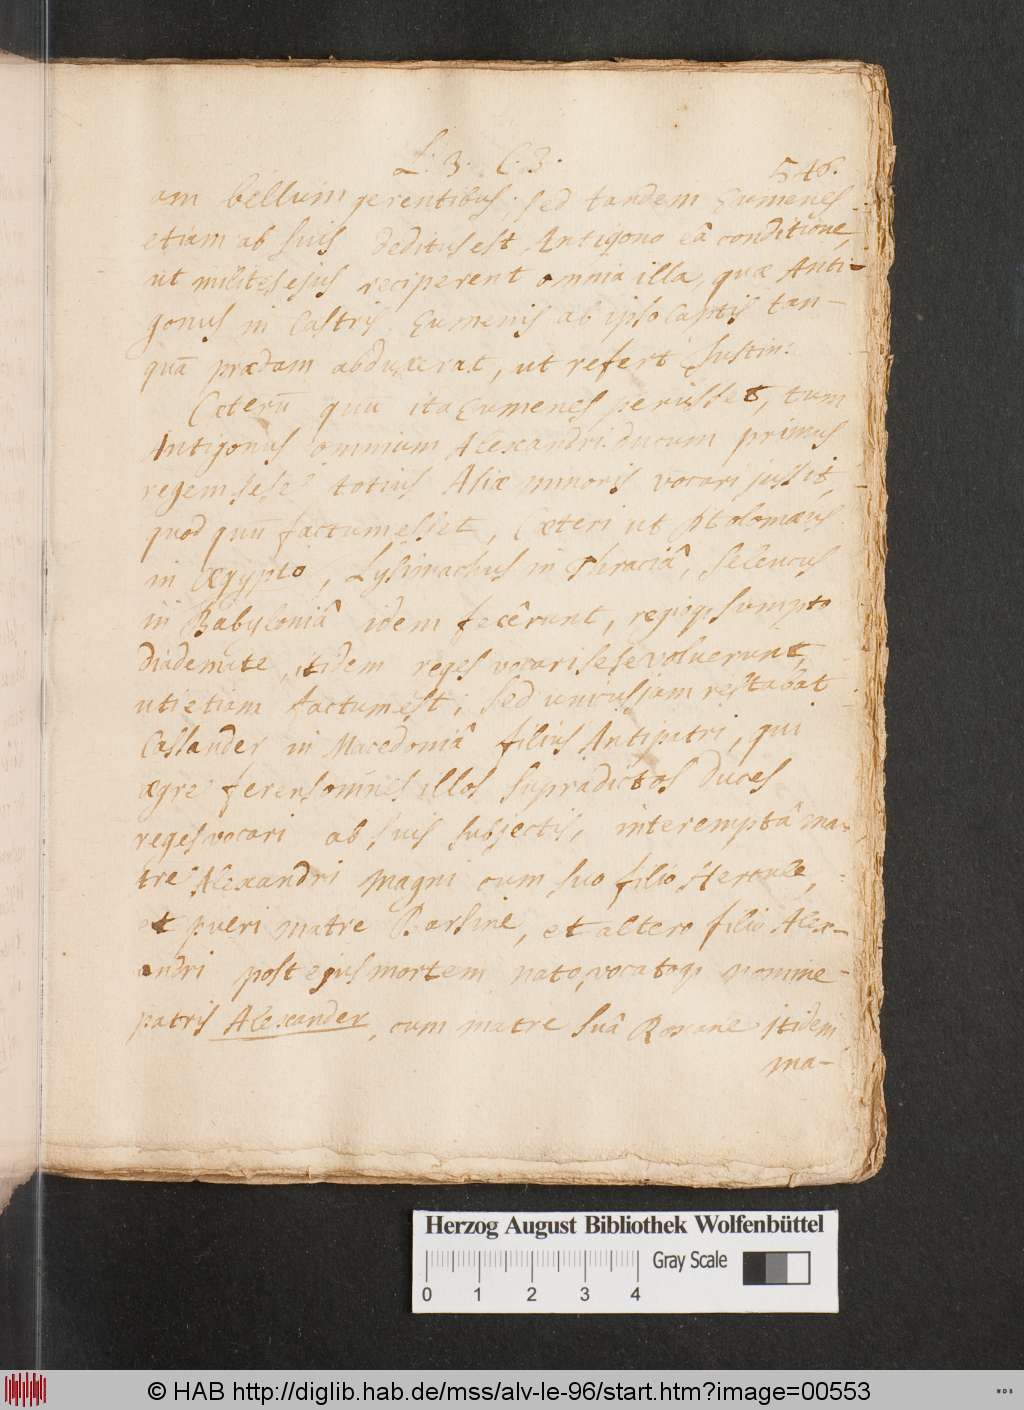 L. 3. C. 3.
546.
am bellum gerentibus. sed tandem Eumenes
etiam ab suis deditus est Antigono eâ conditione,
ut milites ejus reciperent omnia illa, quæ Anti-
gonus in Castris Eumenis ab ipso Captis tan-
quā prædam abduxerat, ut refert Justin:
Cæterū quū ita Eumenes periisset, tum
Antigonus omnium Alexandri ducum primus
regem sese totius Asiæ minoris vocari jussit,
quod quū factum esset, Cæteri ut Ptolomæus
in Ægypto, Lysimachus in Thraciâ, Seleucus
in Babyloniâ idem fecêrunt, regioq; sumpto
diademate, itidem reges vocari sese voluerunt,
uti etiam factum est; sed unus jam restabat
Cassander in Macedoniâ filius Antipatri, qui
ægre ferens omnes illos supradictos Duces
reges vocari ab suis subjectis, interemptâ ma-
tre Alexandri Magni cum suo filio Hercule,
et pueri matre Barsine, et altero filio Alex-
andri post ejus mortem nato, vocatoq; nomine
patris Alexander, cum matre suâ Roxane itidem
ma-
Herzog August Bibliothek Wolfenbüttel
Gray Scale
0 1 2 3 4
© HAB http://diglib.hab.de/mss/alv-le-96/start.htm?image=00553